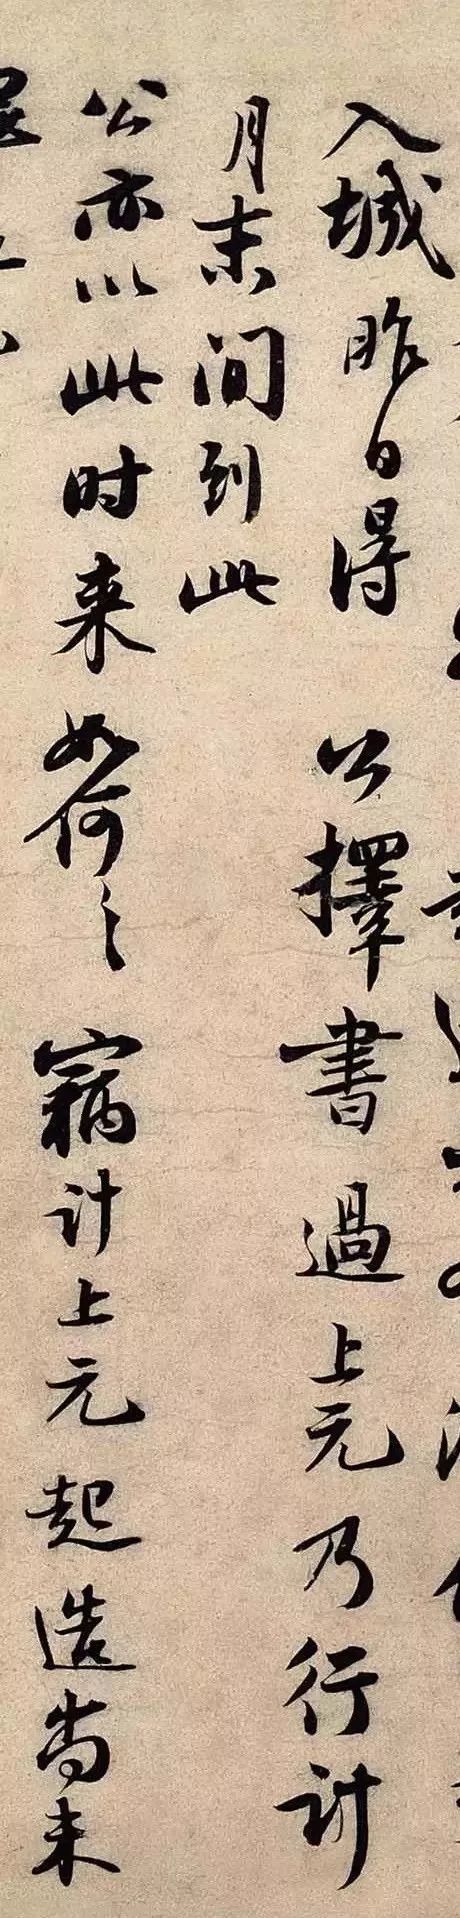 入城昨日得 公擇書過上元乃行計
月末间到此
公亦以此时来如何〻竊计上元起造尚未